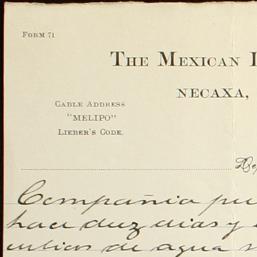 Form 71
The Mexican
NECAXA,
Cable Address
"MELIPO"
Lieber's Code.
Compañia pu
hace diez dias y
cubicos de agua